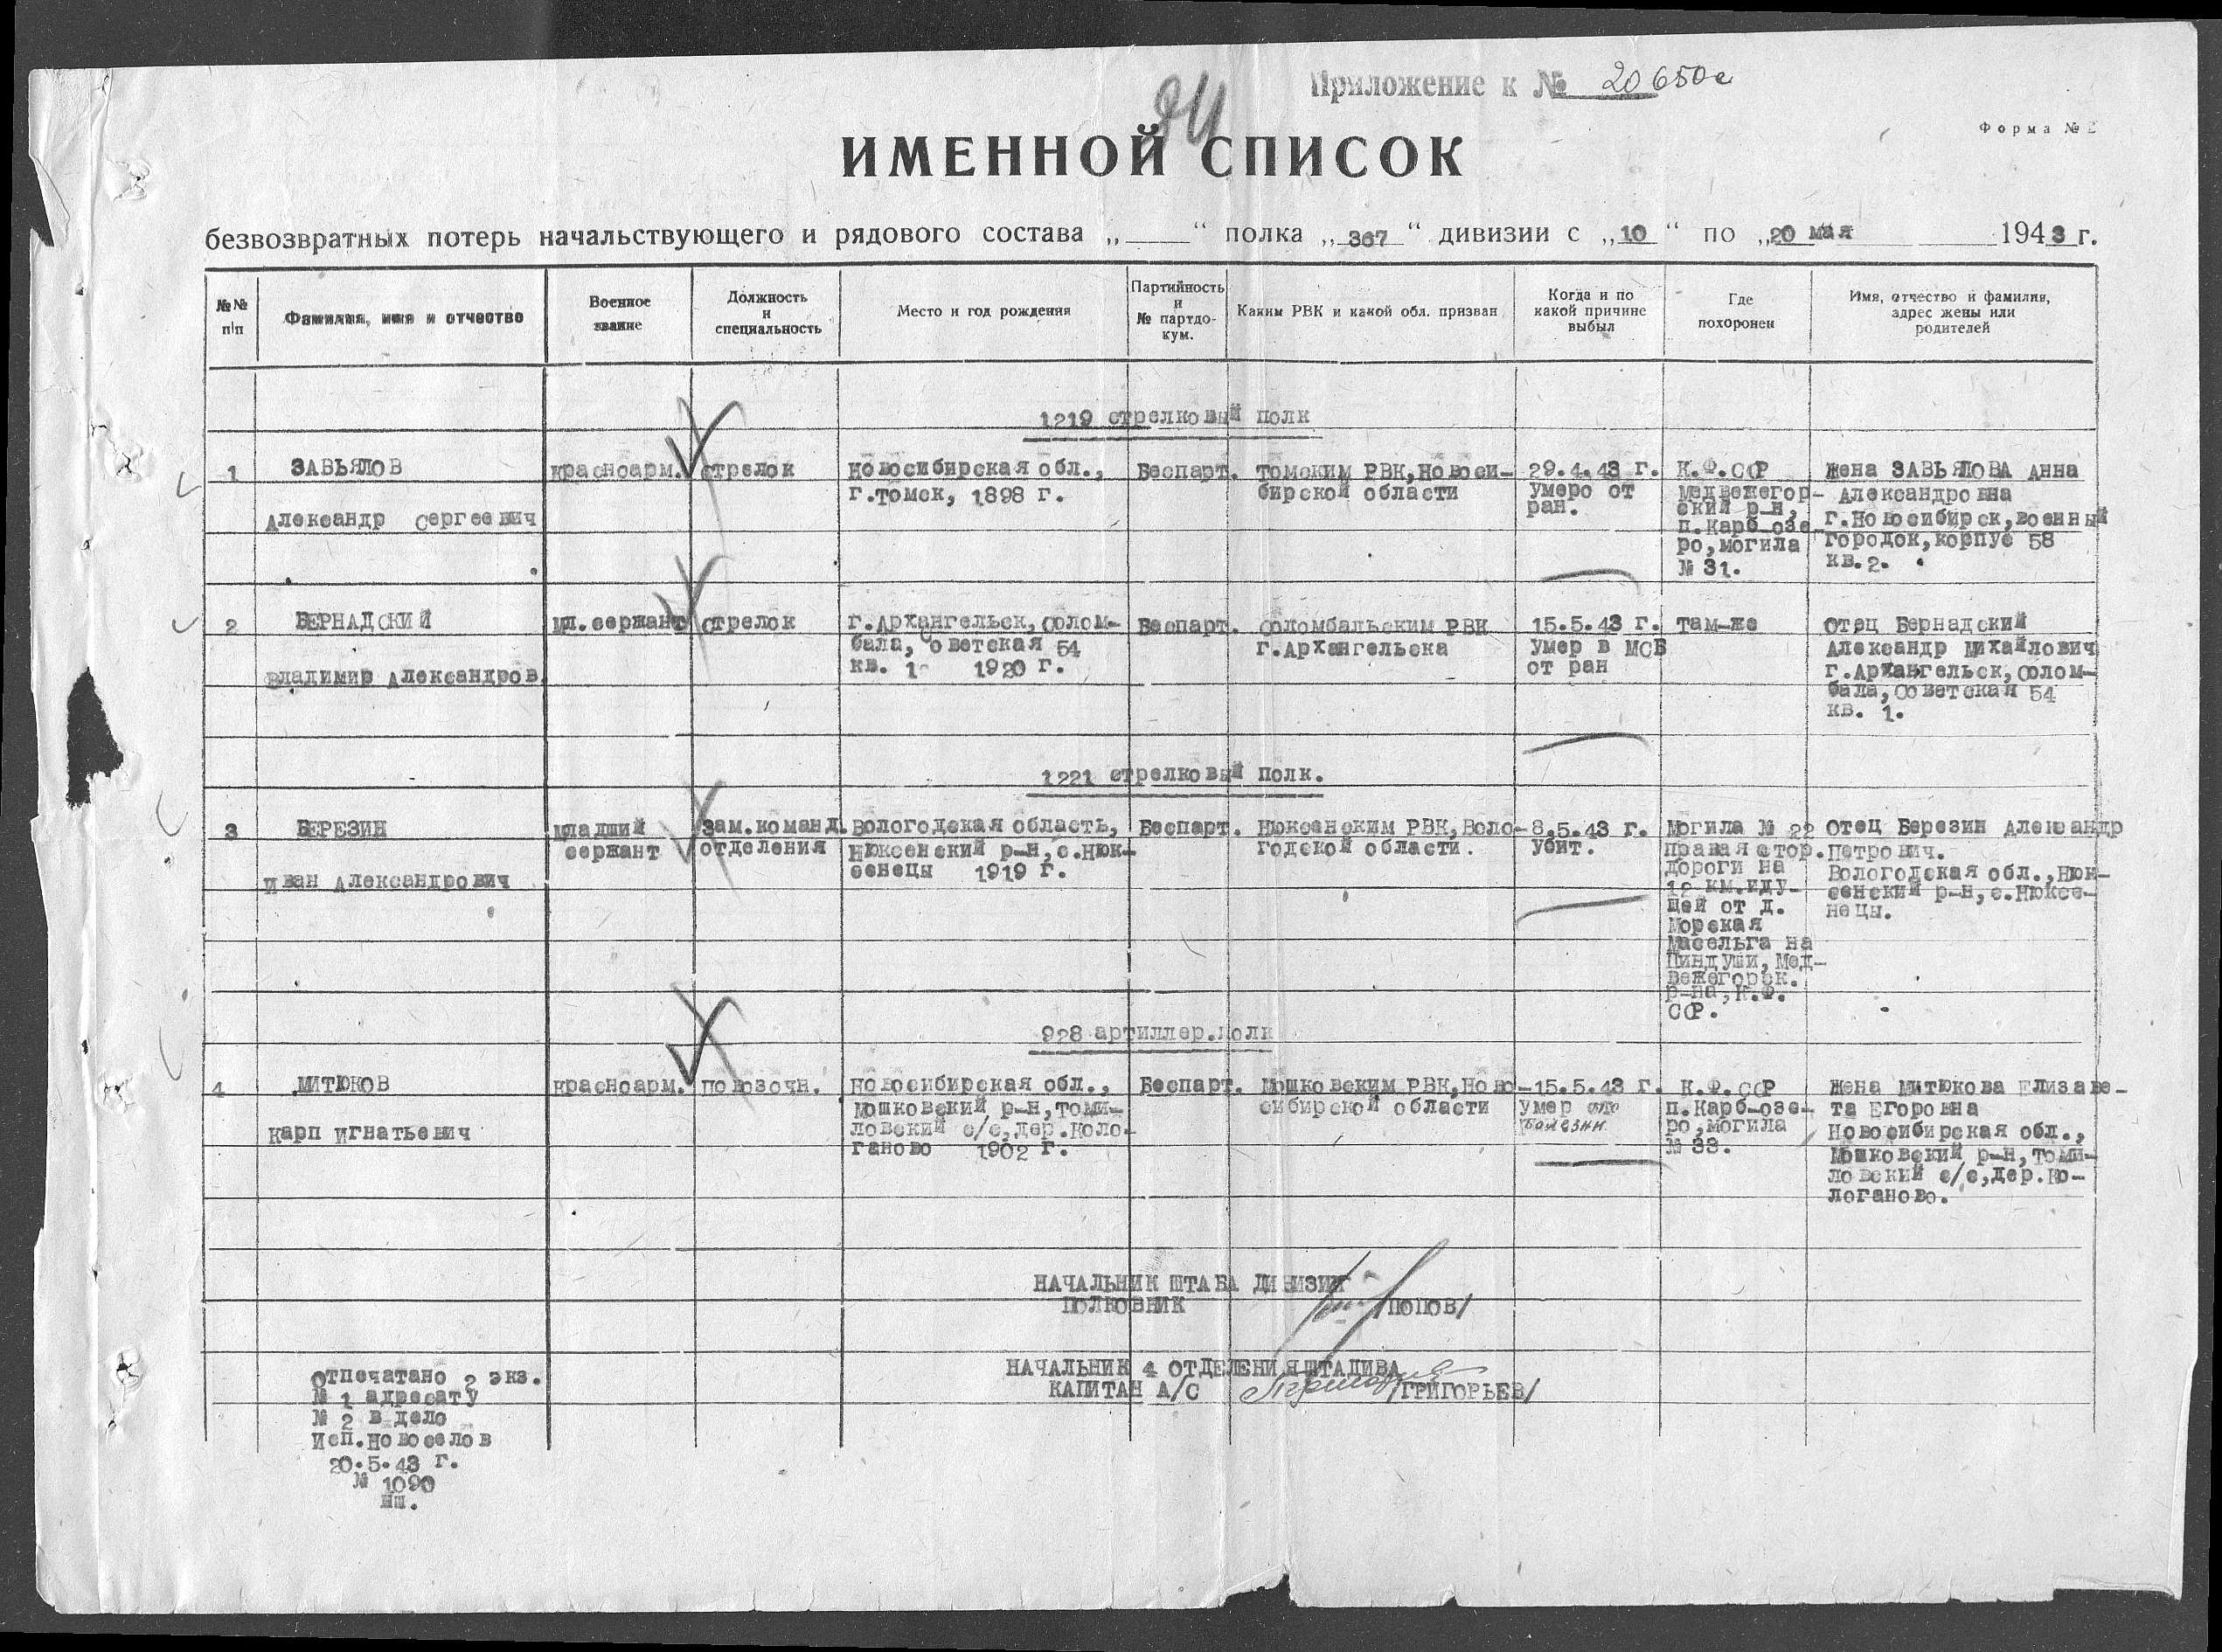 Приложение к № 20650с
24
Форма № 2
ИМЕННОЙ СПИСОК
безвозвратных потерь начальствующего и рядового состава „ “ полка „367“ дивизии с „10“ по „20 мая 1943 г.
№№ п/п
Фамилия, имя и отчество
Военное звание
Должность и специальность
Место и год рождения
Партийность и № партдо-кум.
Каким РВК и какой обл. призван
Когда и по какой причине выбыл
Где похоронен
Имя, отчество и фамилия, адрес жены или родителей
1219 стрелковый полк
1
ЗАВЬЯЛОВ
Александр Сергеевич
красноарм.
стрелок
Новосибирская обл.,
г.Томск, 1898 г.
Беспарт.
Томским РВК,Новоси-
бирской области
29.4.43 г.
умеро от
ран.
К.Ф.ССР
Медвежегор-
ский р-н,
п.Карб_озе_
ро,могила
№ 31.
Жена ЗАВЬЯЛОВА Анна
Александровна
г.Новосибирск,военный
городок,корпус 58
кв.2.
2
БЕРНАДСКИЙ
Владимир Александров.
мл.сержант
стрелок
г.Архангельск,Солом-
бала,Советская 54
кв. 1 1920 г.
Беспарт.
Соломбальским РВК
г.Архангельска
15.5.43 г.
умер в МСБ
от ран
Там-же
Отец Бернадский
Александр Михайлович
г.Архангельск,Солом-
бала,Советская 54
кв. 1.
1221 стрелковый полк.
3
БЕРЕЗИН
Иван Александрович
младший
сержант
Зам.команд.
отделения
Вологодская область,
Нюксенский р-н,с.Нюк-
сенецы 1919 г.
Беспарт.
Нюксенским РВК,Воло-
годской области.
8.5.43 г.
убит.
Могила № 22
правая стор.
дороги на
12 км.иду-
щей от д.
Морская
Масельга на
Пиндуши,Мед-
вежегорск.
р-на,К.Ф.
ССР.
Отец Березин Александр
Петрович.
Вологодская обл.,Нюк-
сенский р-н,с.Нюксе-
нецы.
928 артиллер.полк
4
МИТЮКОВ
Карп Игнатьевич
красноарм.
повозочн.
Новосибирская обл.,
Мошковский р-н,Томи-
ловский с/с,дер.Коло-
ганово 1902 г.
Беспарт.
Мошковским РВК,Ново-
сибирской области
15.5.43 г.
умер от
болезни.
К.Ф.ССР
п.Карб-озе-
ро,могила
№ 33.
Жена Митюкова Елизаве-
та Егоровна
Новосибирская обл.,
Мошковский р-н,Томи-
ловский с/с,дер.Ко-
логаново.
НАЧАЛЬНИК ШТАБА ДИВИЗИИ
ПОЛКОВНИК /ПОПОВ/
НАЧАЛЬНИК 4 ОТДЕЛЕНИЯ ШТАДИВА
КАПИТАН А/С /ГРИГОРЬЕВ/
Отпечатано 2 экз.
№ 1 адресату
№ 2 в дело
Исп.Новоселов
20.5.43 г.
№ 1090
нш.